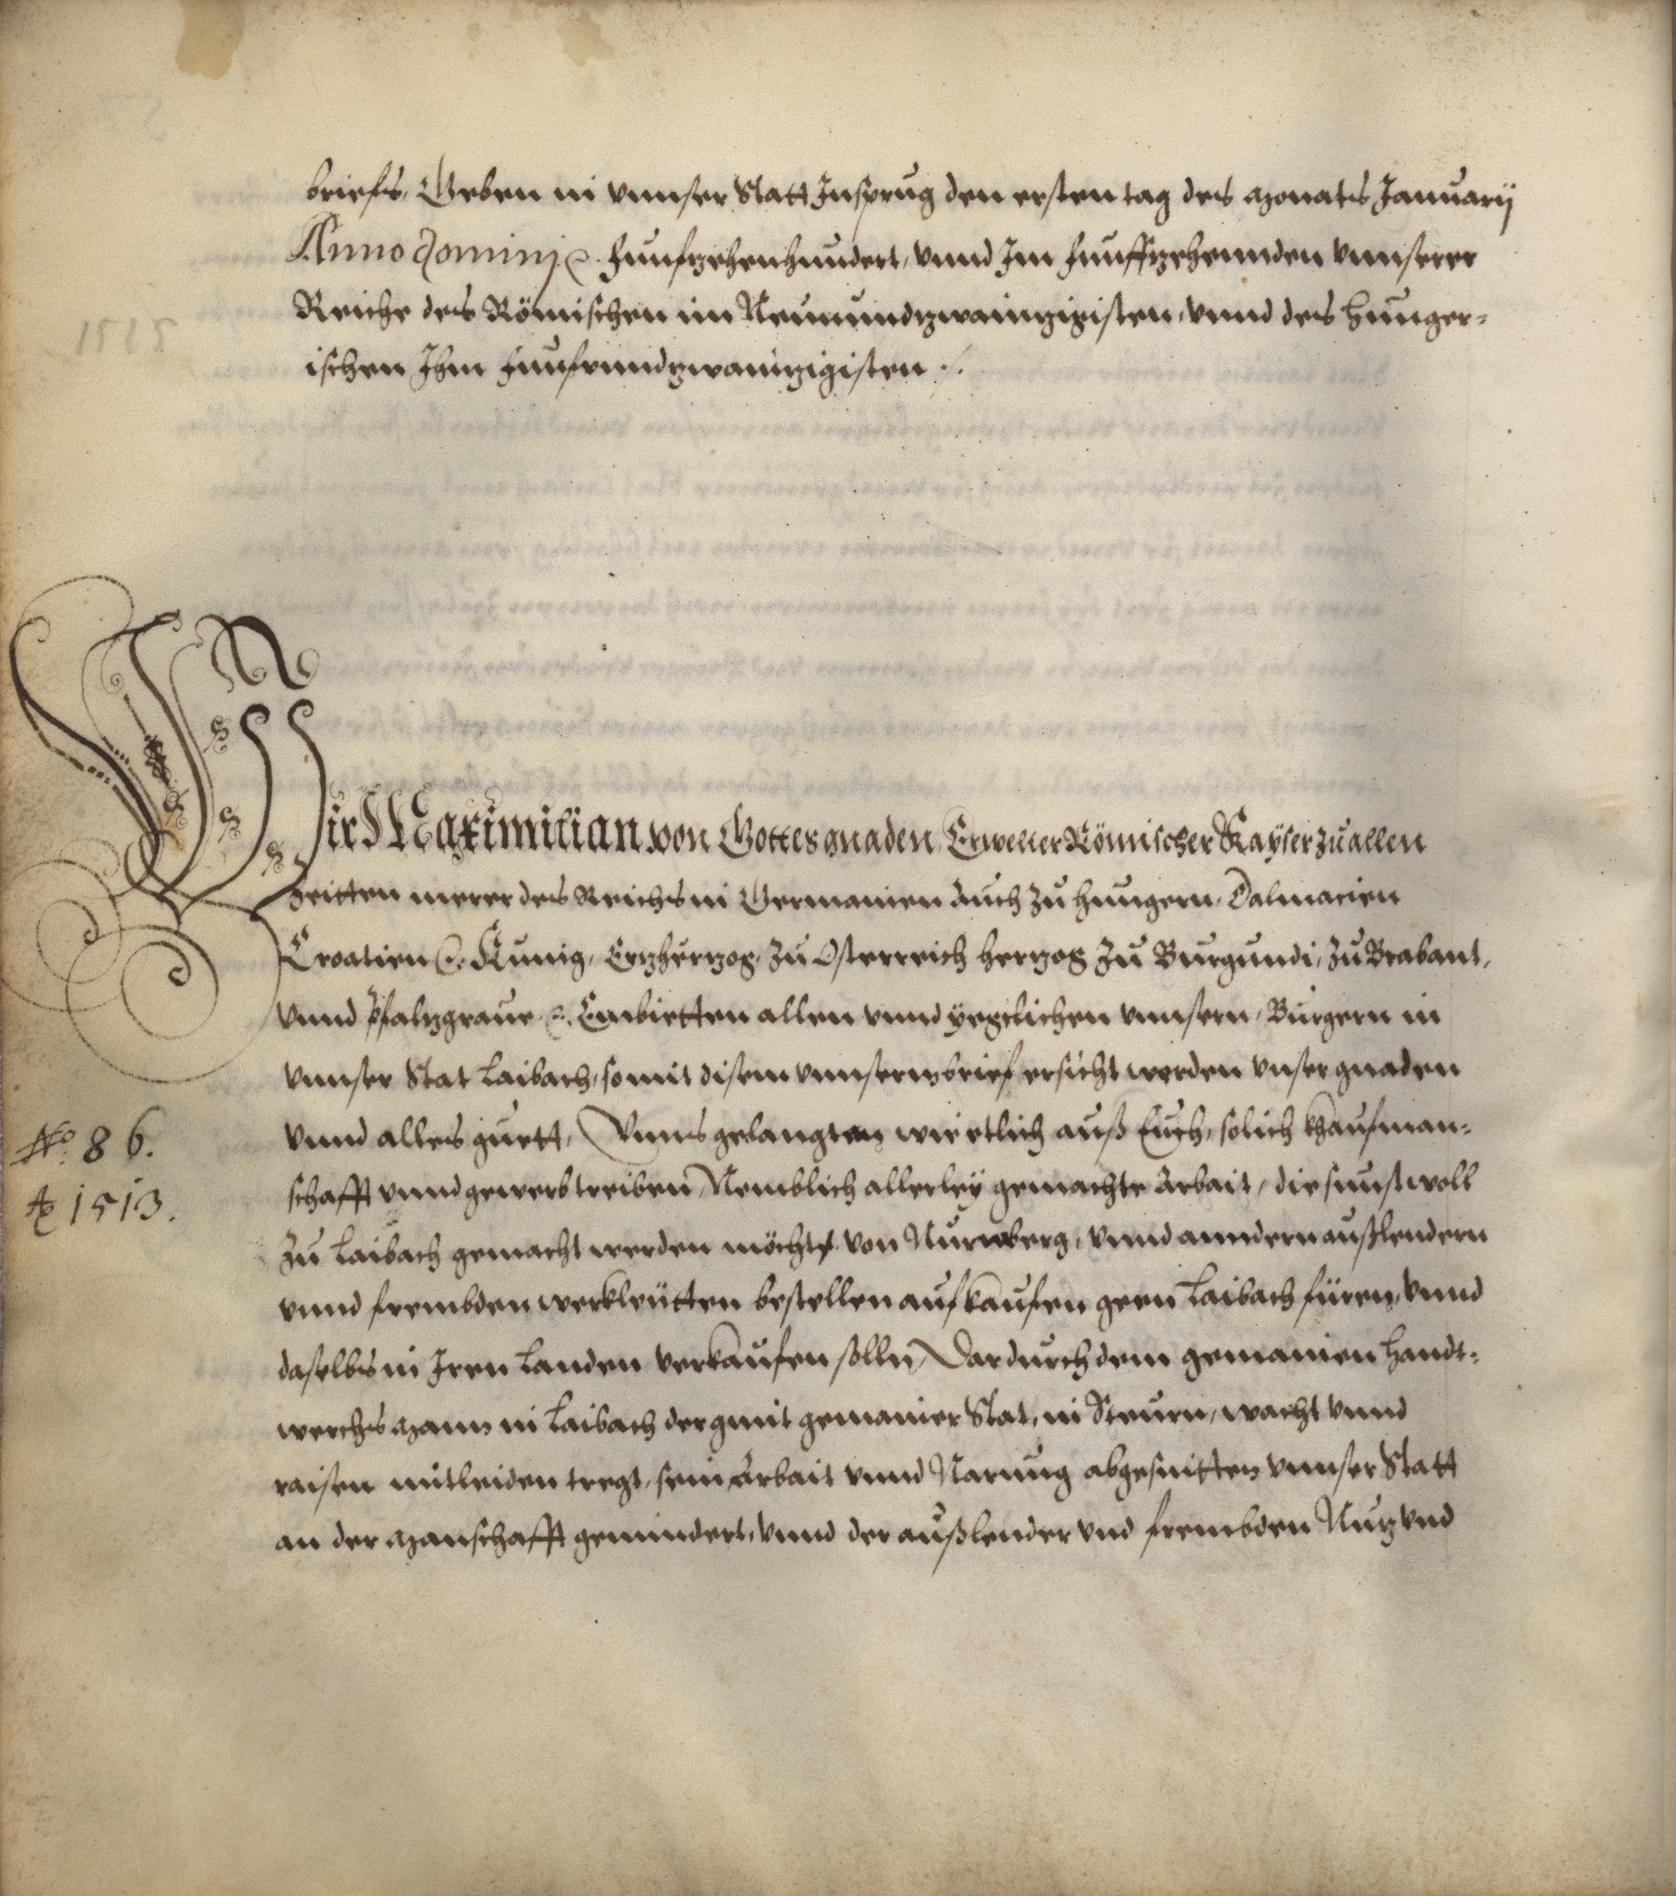 briefs, Geben in vnnser Statt Insprug den ersten tag des Monats Januarÿ
Anno dominj ꝛc. Funfzehenhundert, vnnd Im Funffzehennden vnnserer
Reiche des Römischen im Neunundzwainzigisten, vnnd des Hunger=
ischen Ihm Funfvnndzwainzigisten ./.
Wir Maximilian von Gottes gnaden Erwelter Römischer Kaÿser zu allen
zeitten merer des Reichs in Germanien auch zu Hungern, Dalmacien
Croatien ꝛc. Kunig, Erzherzog zu Osterreich Herzog zu Burgundi, zu Brabant,
vnnd Pfalzgraue ꝛc. Embietten allen vnnd yegclichen vnnsern, Burgern in
vnnser Stat Laibach, so mit disem vnnserm brief ersücht werden vnser gnaden
vnnd alles guett, Vnns gelangt an wie etlich auß Euch, solich Khaufman=
schafft vnnd gewerb treiben, Nemblich allerleÿ gemachte Arbait, die sunst woll
zu Laibach gemacht werden möcht, von Nurmberg, vnnd anndern außlendern
vnnd frembden werkleütten bestellen aufkaufen geen Laibach füren, vnnd
daselbs in Iren Landen verkaufen solln, Dardurch dem gemainen Handt=
werchs Mann in Laibach der mit gemainer Stat, in Steurn, wacht vnnd
raisen mitleiden tregt, sein Arbait vnnd Narung abgesnitten vnnser Statt
an der Manschafft gemindert, vnnd der außlender vnd frembden Nuz vnd
No. 86.
Ao 1513.